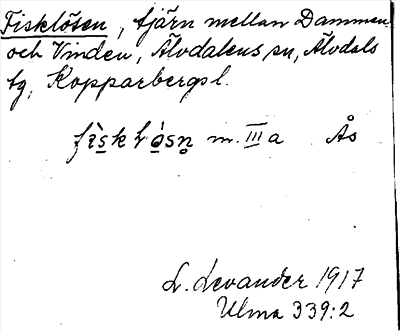 Fisklösen, tjärn mellan Dammen
och Vinden, Älvdalens sn, Älvdals
tg, Kopparbergs l.
m. III a Ås
L. Levander 1917
Ulma 339:2